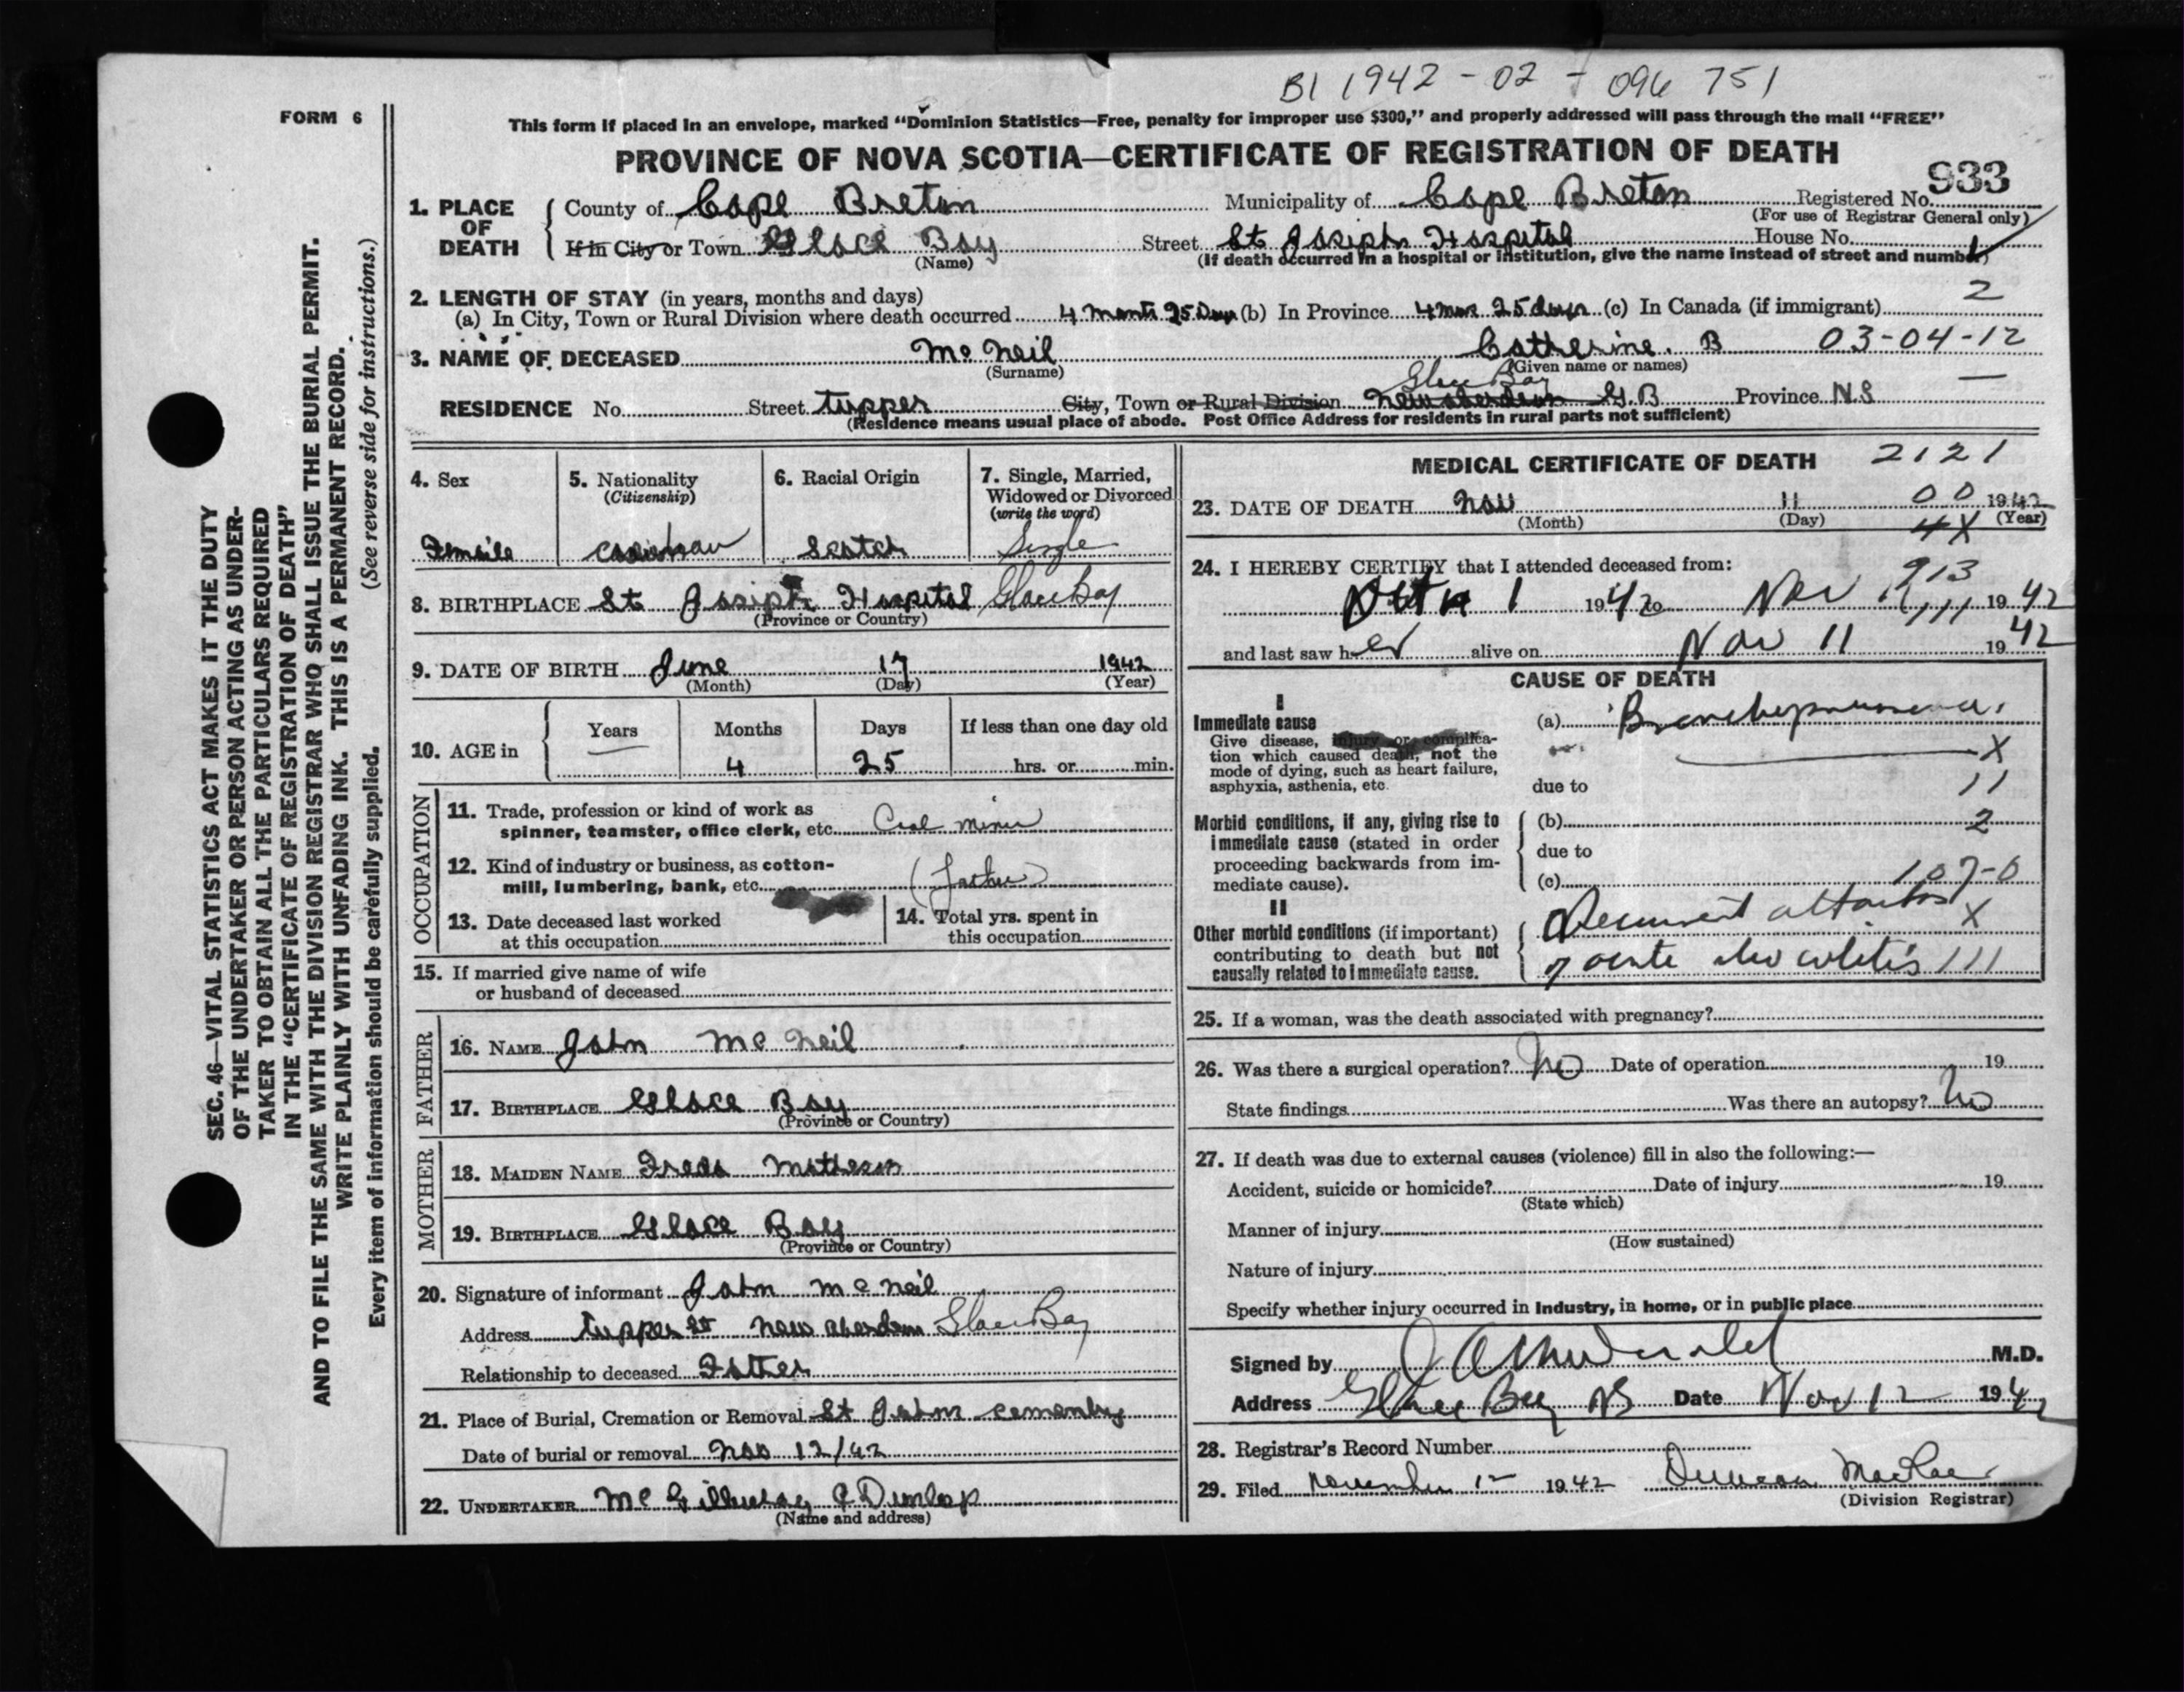 B1 1942-02-096751
FORM 6
This form if placed in an envelope, marked "Dominion Statistics—Free, penalty for improper use $300," and properly addressed will pass through the mail "FREE"
PROVINCE OF NOVA SCOTIA—CERTIFICATE OF REGISTRATION OF DEATH
933
1. PLACE OF DEATH County of Cape Breton Municipality of Cape Breton Registered No.
(For use of Registrar General only)
If in City or Town Glace Bay Street St Josephs Hospital House No.
(Name) (If death occurred in a hospital or institution, give the name instead of street and number)
1
2. LENGTH OF STAY (in years, months and days) 2
(a) In City, Town or Rural Division where death occurred 4 month 25 Days (b) In Province 4 mos 25 days (c) In Canada (if immigrant)
3. NAME OF DECEASED Mc Neil Catherine. B 03-04-12
(Surname) (Given name or names)
Glace Bay
RESIDENCE No. Street Tupper City, Town or Rural Division New Aberdeen G.B Province N.S
(Residence means usual place of abode. Post Office Address for residents in rural parts not sufficient)
4. Sex 5. Nationality (Citizenship) 6. Racial Origin 7. Single, Married, Widowed or Divorced (write the word)
Female Canadian Scotch Single
8. BIRTHPLACE St Joseph Hospital Glace Bay
(Province or Country)
9. DATE OF BIRTH June 17 1942
(Month) (Day) (Year)
10. AGE in Years Months Days If less than one day old
4 25 hrs. or min.
OCCUPATION
11. Trade, profession or kind of work as
spinner, teamster, office clerk, etc. Coal miner
12. Kind of industry or business, as cotton-
mill, lumbering, bank, etc. (Father)
13. Date deceased last worked
at this occupation
14. Total yrs. spent in
this occupation
15. If married give name of wife
or husband of deceased
FATHER
16. NAME John Mc Neil
17. BIRTHPLACE Glace Bay
(Province or Country)
MOTHER
18. MAIDEN NAME Freda Matheson
19. BIRTHPLACE Glace Bay
(Province or Country)
20. Signature of informant John Mc Neil
Address Tupper St New Aberdeen Glace Bay
Relationship to deceased Father
21. Place of Burial, Cremation or Removal St Johns
Date of burial or removal Nov 12/42
22. UNDERTAKER & Dunlop
(Name and address)
MEDICAL CERTIFICATE OF DEATH 2121
23. DATE OF DEATH Nov 11 00 1942
(Month) (Day) 4X (Year)
24. I HEREBY CERTIFY that I attended deceased from:
913
1 1942 to Nov 11 1942
and last saw her alive on Nov 11 1942
CAUSE OF DEATH
I
Immediate cause (a) Bronchopneumonia.
Give disease, injury or complica-
tion which caused death, not the X
mode of dying, such as heart failure,
asphyxia, asthenia, etc. due to 11
Morbid conditions, if any, giving rise to (b) 2
immediate cause (stated in order due to
proceeding backwards from im-
mediate cause). (c) 107-0
II
Other morbid conditions (if important) Recurrent attacks X
contributing to death but not
causally related to immediate cause. of acute ileo colitis 111
25. If a woman, was the death associated with pregnancy?
26. Was there a surgical operation? No Date of operation 19
State findings Was there an autopsy? No
27. If death was due to external causes (violence) fill in also the following:—
Accident, suicide or homicide? Date of injury 19
(State which)
Manner of injury
(How sustained)
Nature of injury
Specify whether injury occurred in Industry, in home, or in public place
Signed by M.D.
Address Glace Bay NS Date Nov 12 1942
28. Registrar's Record Number
29. Filed November 12 1942 Duncan MacRae
(Division Registrar)
SEC. 46—VITAL STATISTICS ACT MAKES IT THE DUTY
OF THE UNDERTAKER OR PERSON ACTING AS UNDER-
TAKER TO OBTAIN ALL THE PARTICULARS REQUIRED
IN THE "CERTIFICATE OF REGISTRATION OF DEATH"
AND TO FILE THE SAME WITH THE DIVISION REGISTRAR WHO SHALL ISSUE THE BURIAL PERMIT.
WRITE PLAINLY WITH UNFADING INK. THIS IS A PERMANENT RECORD.
Every item of information should be carefully supplied. (See reverse side for instructions.)